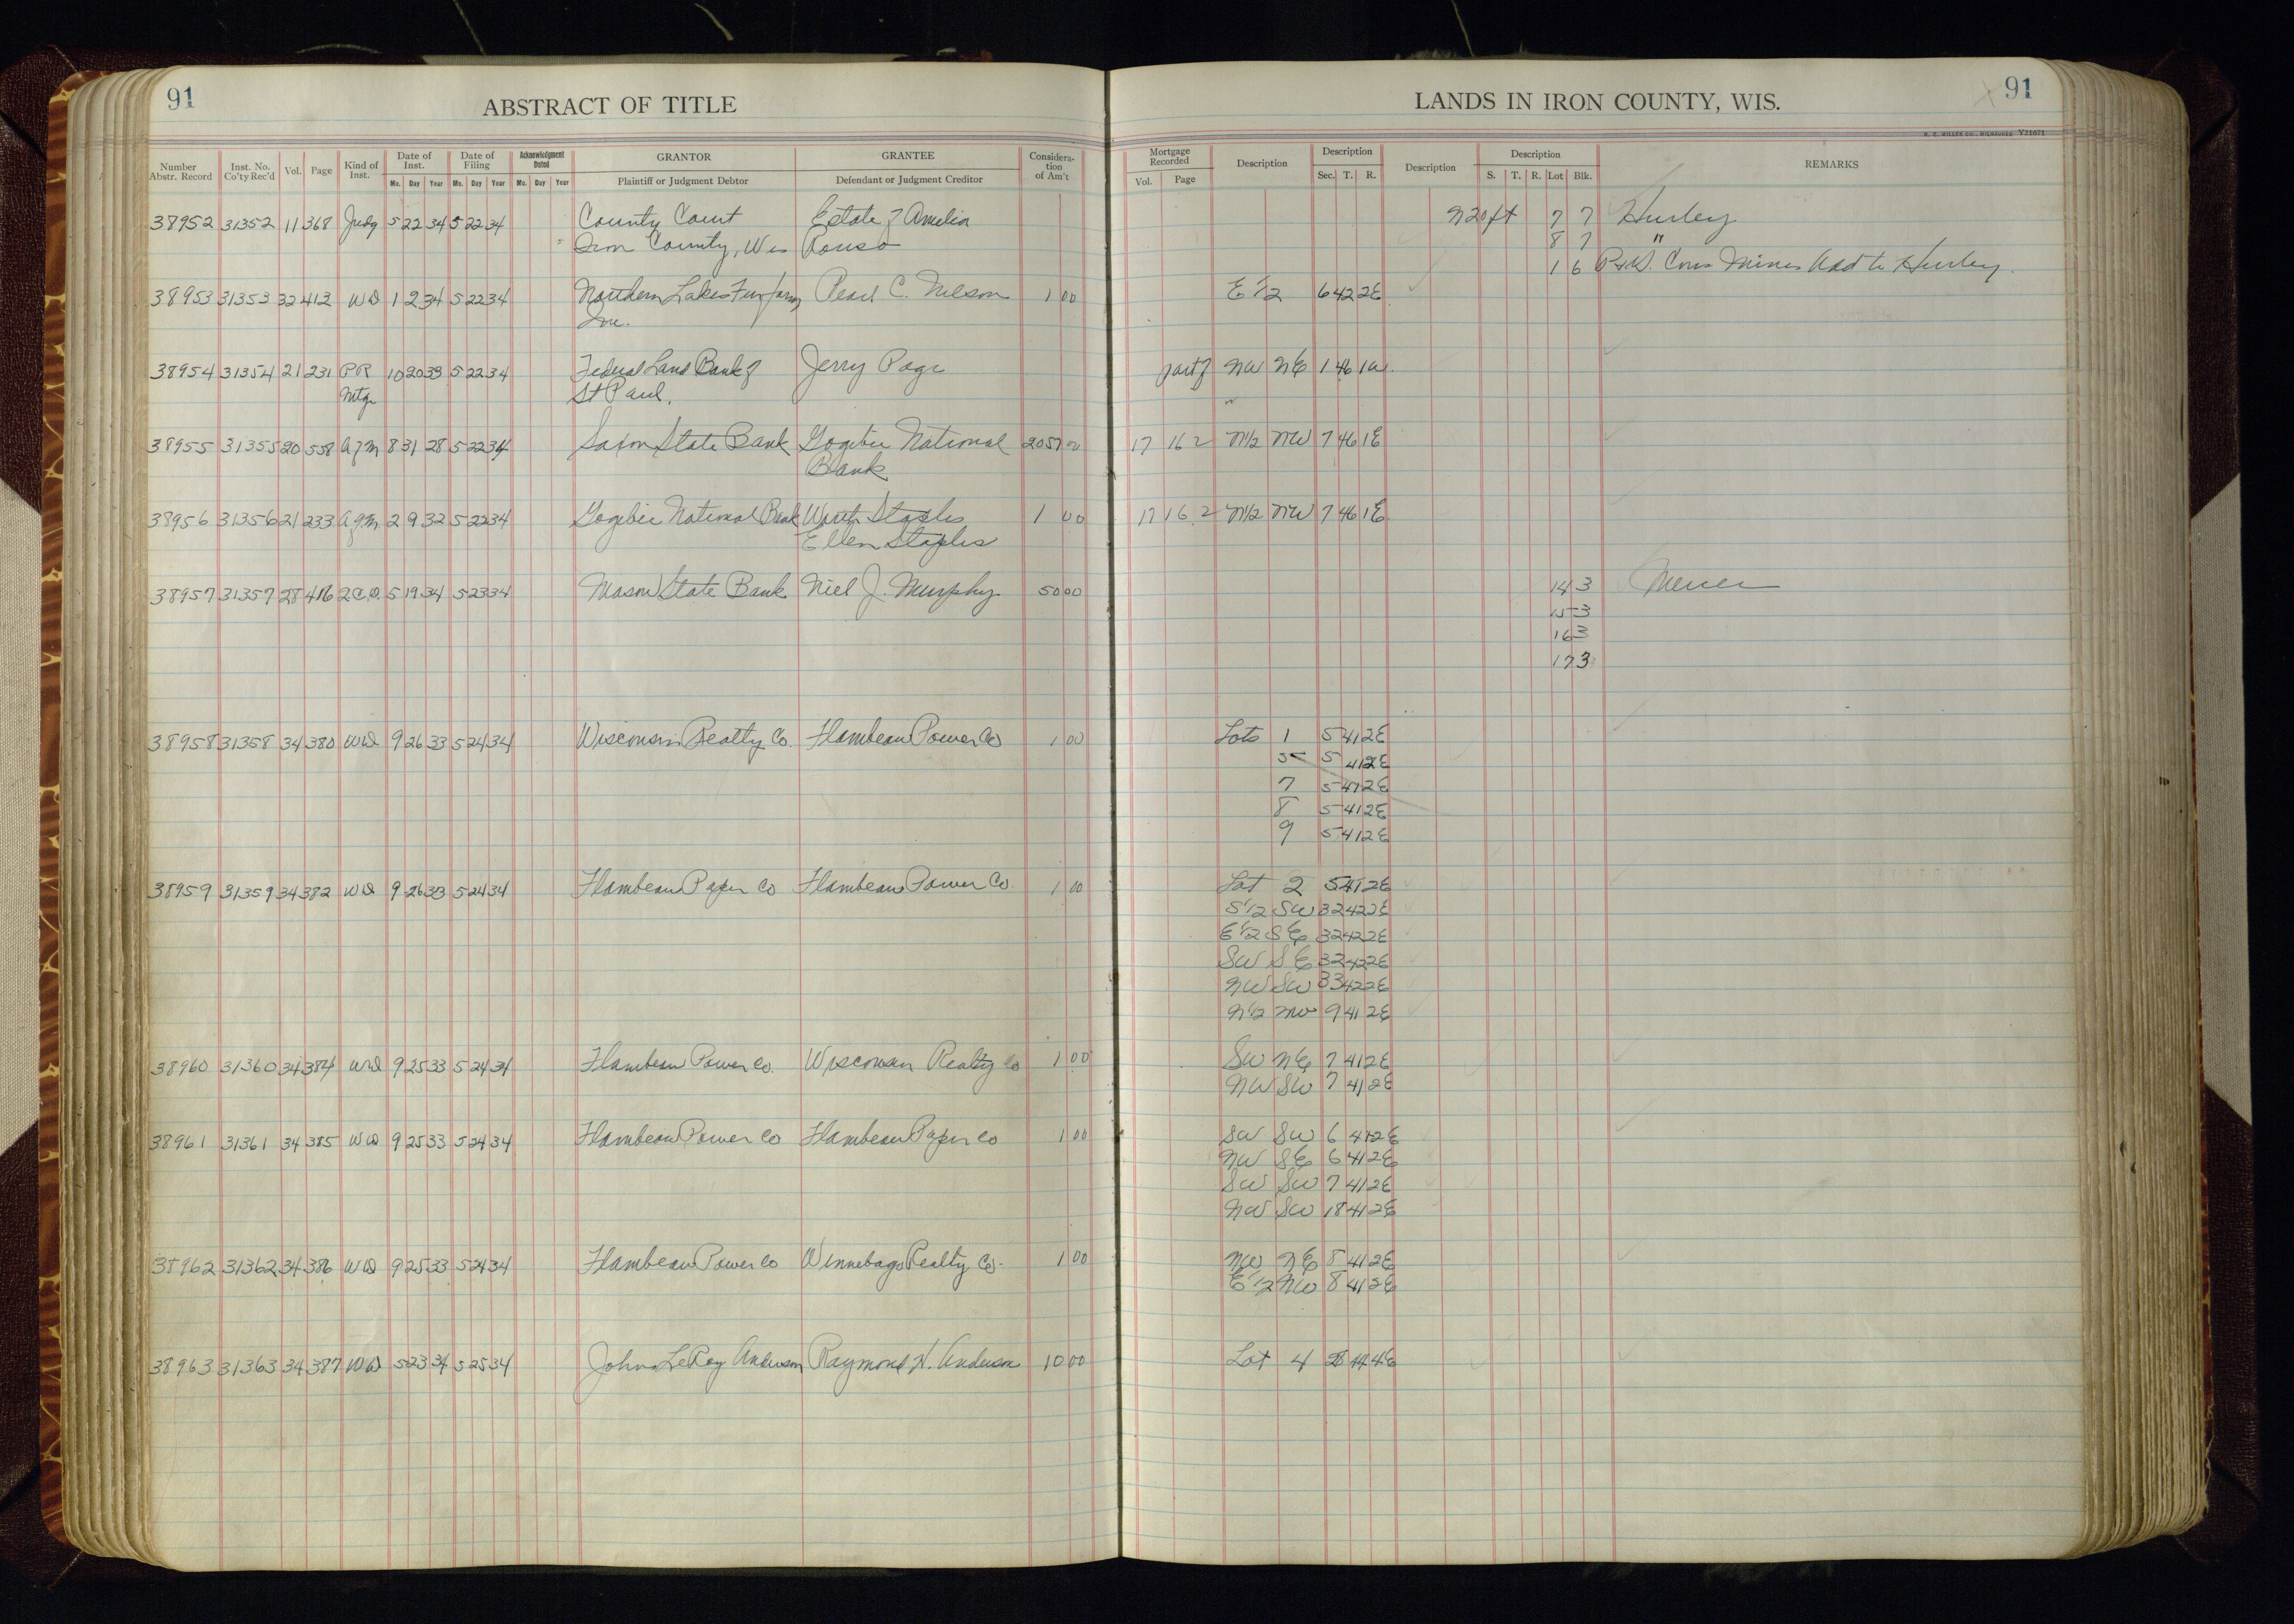 91 ABSTRACT OF TITLE
LANDS IN IRON COUNTY, WIS. 91
H. C. MILLER CO., MILWAUKEE Y21671
Number Abstr. Record Inst. No. Co'ty Rec'd Vol. Page Kind of Inst. Date of Inst. Date of Filing Acknowledgment Dated GRANTOR GRANTEE Considera-tion of Am't Mortgage Recorded Description Description Description Description REMARKS
Mo. Day Year Mo. Day Year Mo. Day Year Plaintiff or Judgment Debtor Defendant or Judgment Creditor Vol. Page Sec. T. R. S. T. R. Lot Blk.
38952 31352 11 368 Judg 5 22 34 5 22 34 County Court Estate of Amelia N20ft 7 7 Hurley
Iron County, Wis Rouso 8 7 "
1 6 Cons Mines Add to Hurley
38953 31353 32 412 WD 1 2 34 5 22 34 Northern Lakes Fur farms Pearl C. Nelson 1 00 E 1/2 6 42 2E
Inc.
38954 31354 21 231 PR 10 20 33 5 22 34 Federal Land Bank of Jerry Page part of NW NE 1 46 1W
Mtg St Paul.
38955 31355 20 558 A of M 8 31 28 5 22 34 Saxon State Bank Gogebic National 2057 00 17 162 N1/2 NW 7 46 1E
Bank
38956 31356 21 233 A of M 2 9 32 5 22 34 Gogebic National Bank Worth Staples 1 00 17 162 N1/2 NW 7 46 1E
Ellen Staples
38957 31357 28 416 2C.D. 5 19 34 5 23 34 Mason State Bank Niel J. Murphy 50 00 14 3 Mercer
15 3
16 3
17 3
38958 31358 34 380 WD 9 26 33 5 24 34 Wisconsin Realty Co. Flambeau Power Co 1 00 Lots 1 5 41 2E
5 5 41 2E
7 5 41 2E
8 5 41 2E
9 5 41 2E
38959 31359 34 382 WD 9 26 33 5 24 34 Flambeau Paper Co Flambeau Power Co. 1 00 Lot 2 5 41 2E
S1/2 SW 32 42 2E
E1/2 SE 32 42 2E
SW SE 32 42 2E
NW SW 33 42 2E
N1/2 NW 9 41 2E
38960 31360 34 384 WD 9 25 33 5 24 34 Flambeau Power Co. Wisconsin Realty Co 1 00 SW NE 7 41 2E
NW SW 7 41 2E
38961 31361 34 385 WD 9 25 33 5 24 34 Flambeau Power Co Flambeau Paper Co 1 00 SW SW 6 41 2E
NW SE 6 41 2E
SW SW 7 41 2E
NW SW 18 41 2E
38962 31362 34 386 WD 9 25 33 5 24 34 Flambeau Power Co Winnebago Realty Co. 1 00 NW NE 8 41 2E
E1/2 NW 8 41 2E
38963 31363 34 387 WD 5 23 34 5 25 34 John LeRoy Anderson Raymond H. Anderson 10 00 Lot 4 28 44 4E